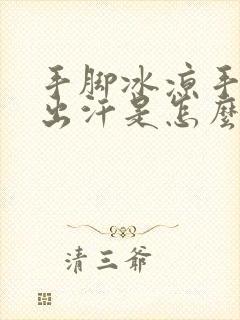 手脚冰凉手
出汗是怎麽
清三爺